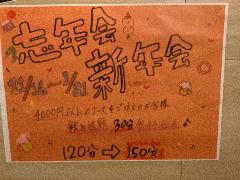 忘年会
新年会
12/16～1/31
4000円以上のコースをご注文のお客様
飲み放題 30分
120分→150分